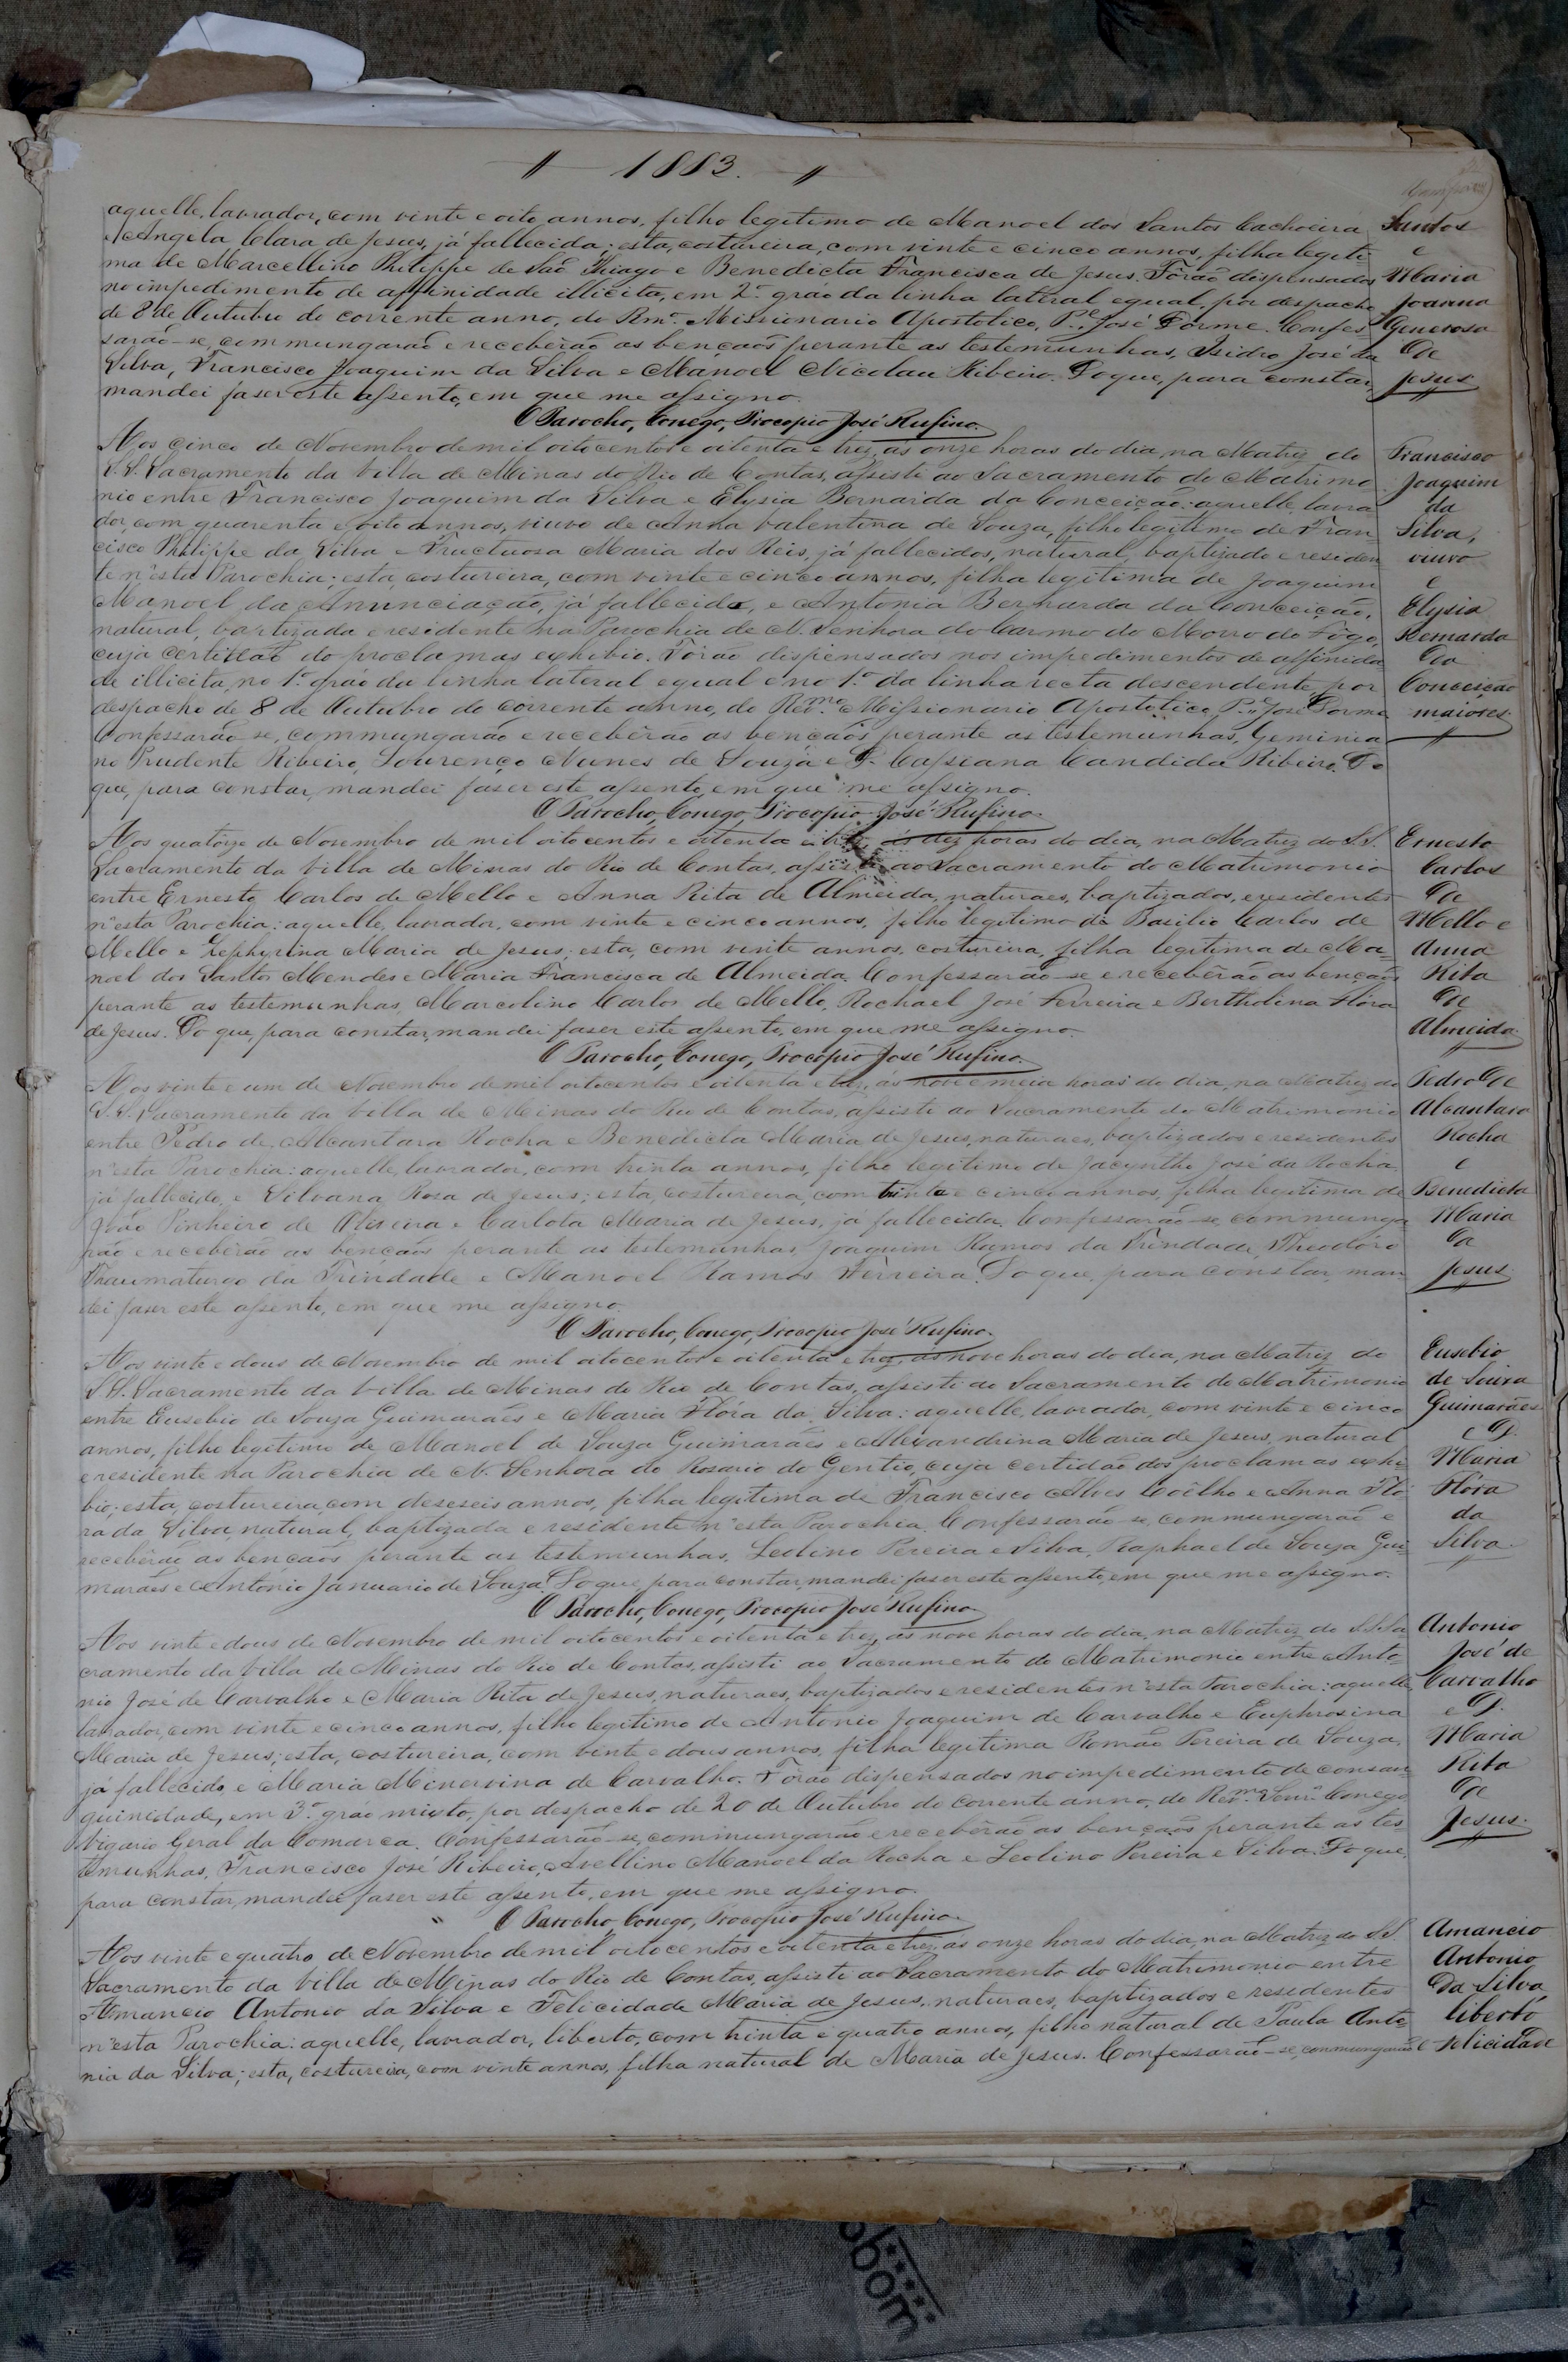 1883.
aquelle, lavrador, com vinte e oito annos, filho legitimo de Manoel dos Santos Cachoeira
e Angela Clara de Jesus, já fallecida; esta, costureira, com vinte e cinco annos, filha legiti
ma de Marcellino Philippe de São Thiago e Benedicta Francisca de Jesus. Forão dispensados
no impedimento de affinidade illicita, em 2º gráo da linha lateral egual, por despacho
de 8 de Outubro do corrente anno, do Rmº Missionario Apostolico, Pe. José Forme. Confes-
sarão-se, commungarão e receberão as bençãos perante as testemunhas, Isidro José da
Silva, Francisco Joaquim da Silva e Manoel Nicolau Ribeiro. Do que, para constar,
mandei faser este assento, em que me assigno.
O Parocho, Conego, Procopio José Rufino.
Santos
e
Maria
Joanna
Generosa
de
Jesus
Aos cinco de Novembro de mil oitocentos e oitenta e trez, ás onze horas do dia, na Matriz do
S. S. Sacramento da Villa de Minas do Rio de Contas, assisti ao Sacramento do Matrimo
nio entre Francisco Joaquim da Silva e Elysia Bernarda da Conceição: aquelle, lavra
dor, com quarenta e oito annos, viuvo de Anna Valentina de Souza, filho legitimo de Fran
cisco Philippe da Silva e Fructuosa Maria dos Reis, já fallecidos, natural, baptizado e residen
te n'esta Parochia; esta, costureira, com vinte e cinco annos, filha legitima de Joaquim
Manoel da Anunciação, já fallecido, e Antonia Bernarda da Conceição,
natural, baptizada e residente na Parochia de N. Senhora do Carmo do Morro do Fogo,
cuja certidão do proclamas exhibio. Forão dispensados nos impedimentos de affinida
de illicita, no 1º gráo da linha lateral egual e no 1º da linha recta descendente, por
despacho de 8 de Outubro do corrente anno, do Revmº Missionario Apostolico, Pe. José Forme
Confessarão-se, commungarão e receberão as bençãos perante as testemunhas, Geminia
no Prudente Ribeiro, Lourenço Nunes de Souza e D. Cassiana Candida Ribeiro. Do
que, para constar, mandei faser este assento, em que me assigno.
O Parocho, Conego, Procopio José Rufino.
Francisco
Joaquim
da
Silva,
viuvo
e
Elysia
Bernarda
da
Conceição
maiores
Aos quatorze de Novembro de mil oitocentos e oitenta e trez, ás dez horas do dia, na Matriz do S.S.
Sacramento da Villa de Minas do Rio de Contas, assisti ao Sacramento do Matrimonio
entre Ernesto Carlos de Mello e Anna Rita de Almeida, naturaes, baptizados, e residentes
n'esta Parochia: aquelle, lavrador, com vinte e cinco annos, filho legitimo de Basilio Carlos de
Mello e Zephyrina Maria de Jesus; esta, com vinte annos, costureira, filha legitima de Ma-
noel dos Santos Mendes e Maria Francisca de Almeida. Confessarão-se e receberão as bençãos
perante as testemunhas, Marcolino Carlos de Mello, Rochael José Ferreira e Bertholina Flora
de Jesus. Do que, para constar, mandei faser este assento, em que me assigno.
O Parocho, Conego, Procopio José Rufino.
Ernesto
Carlos
de
Mello e
Anna
Rita
de
Almeida
Aos vinte e um de Novembro de mil oitocentos e oitenta e trez, ás nove e meia horas do dia, na Matriz do
S.S. Sacramento da Villa de Minas do Rio de Contas, assisti ao Sacramento do Matrimonio
entre Pedro de Alcantara Rocha e Benedicta Maria de Jesus, naturaes, baptizados e residentes
n'esta Parochia: aquelle, lavrador, com trinta annos, filho legitimo de Jacyntho José da Rocha,
já fallecido, e Silvana Rosa de Jesus; esta, costureira, com trinta e cinco annos, filha legitima de
João Pinheiro de Oliveira e Carlota Maria de Jesus, já fallecida. Confessarão-se, communga
rão e receberão as bençãos perante as testemunhas, Joaquim Ramos da Trindade, Theodóro
Traumaturgo da Trindade e Manoel Ramos Ferreira. Do que, para constar, man
dei faser este assento, em que me assigno.
O Parocho, Conego, Procopio José Rufino.
Pedro de
Alcantara
Rocha
e
Benedicta
Maria
de
Jesus
Aos vinte e dous de Novembro de mil oitocentos e oitenta e trez, ás nove horas do dia, na Matriz do
S.S. Sacramento da Villa de Minas do Rio de Contas, assisti ao Sacramento do Matrimonio
entre Eusebio de Souza Guimarães e Maria Flóra da Silva: aquelle, lavrador, com vinte e cinco
annos, filho legitimo de Manoel de Souza Guimarães e Alexandrina Maria de Jesus, natural
e residente na Parochia de N. Senhora do Rosario do Gentio, cuja certidão dos proclamas exhi
bio; esta, costureira, com deseseis annos, filha legitima de Francisco Alves Coêlho e Anna Fló
ra da Silva, natural, baptizada e residente n'esta Parochia. Confessarão-se, commungarão e
receberão as bençãos perante as testemunhas, Leolino Pereira e Silva, Raphael de Souza Gui-
marães e Antonio Januario de Souza. Do que, para constar, mandei faser este assento, em que me assigno.
O Parocho, Conego, Procopio José Rufino.
Eusebio
de Souza
Guimarães
e D.
Maria
Flóra
da
Silva
Aos vinte e dous de Novembro de mil oitocentos e oitenta e trez, ás nove horas do dia, na Matriz do S.S. Sa
cramento da Villa de Minas do Rio de Contas, assisti ao Sacramento do Matrimonio entre Anto-
nio José de Carvalho e Maria Rita de Jesus, naturaes, baptizados e residentes n'esta Parochia: aquelle,
lavrador, com vinte e cinco annos, filho legitimo de Antonio Joaquim de Carvalho e Euphrosina
Maria de Jesus; esta, costureira, com vinte e dous annos, filha legitima Romão Pereira de Souza,
já fallecido, e Maria Minervina de Carvalho. Forão dispensados no impedimento de consan-
guinidade, em 3º gráo mixto, por despacho de 20 de Outubro do corrente anno, do Revmº Senr. Conego
Vigario Geral da Comarca. Confessarão-se, commungarão e receberão as bençãos perante as tes-
temunhas, Francisco José Ribeiro, Avellino Manoel da Rocha e Leolino Pereira e Silva. Do que,
para constar, mandei faser este assento, em que me assigno.
O Parocho, Conego, Procopio José Rufino.
Antonio
José de
Carvalho
e D.
Maria
Rita
de
Jesus.
Aos vinte e quatro de Novembro de mil oitocentos e oitenta e trez, ás onze horas do dia, na Matriz do S.S.
Sacramento da Villa de Minas do Rio de Contas, assisti ao Sacramento do Matrimonio entre
Amancio Antonio da Silva e Felicidade Maria de Jesus, naturaes, baptizados e residentes
n'esta Parochia: aquelle, lavrador, liberto, com trinta e quatro annos, filho natural de Paula Anto
nia da Silva; esta, costureira, com vinte annos, filha natural de Maria de Jesus. Confessarão-se, commungarão
Amancio
Antonio
da Silva
liberto
e Felicidade
obom